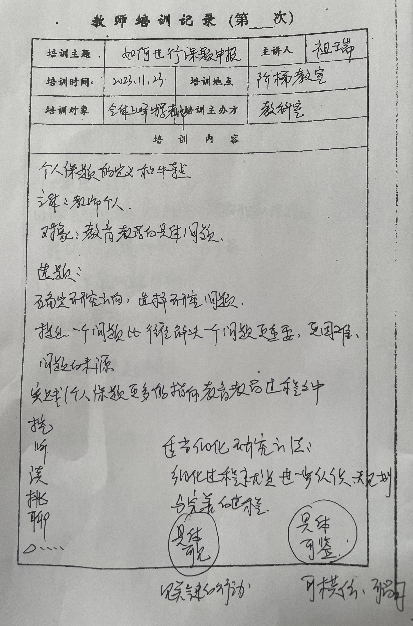 教师培训记录(第 次)
培训主题 如何进行课题申报 主讲人
培训时间: 2023.11.23 培训地点 阶梯教室
培训对象 全体 培训主办方 教科室
培训内容
个人课题的定义和特点
主体:教师个人.
对象:教育教学的具体问题.
选题:
确定研究方向,选择研究问题.
提出一个问题比解决一个问题更重要,更困难.
问题的来源
个人课题更多的指向教育教学过程之中
挖
听
读
挑
聊
适当细化研究方法:
细化过程 也 认识、
与完善的过程.
具体
可见
具体
可鉴.
的行动
可模仿、